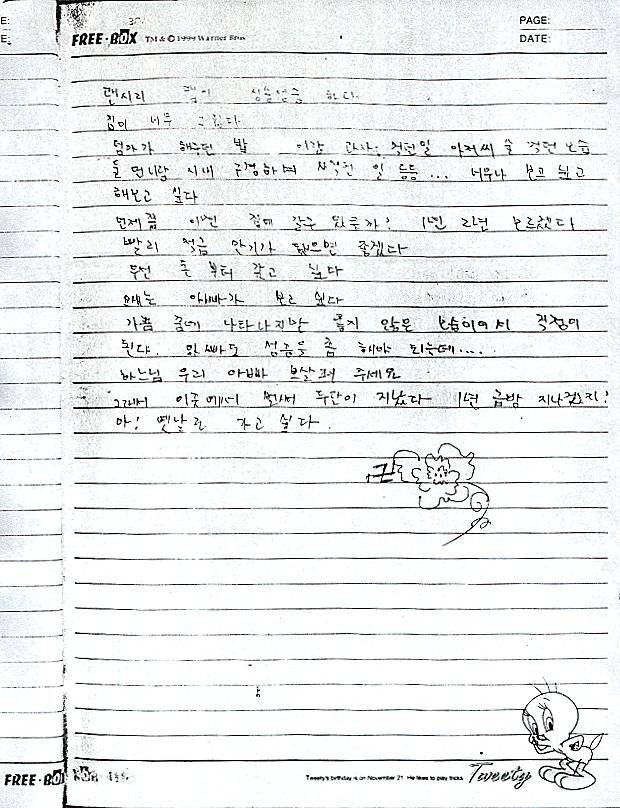 FREE·BOX TM & © 1999 Warner Bros
PAGE:
DATE:
괜시리 맘이 싱숭생숭 하다.
집이 너무 그립다
엄마가 해주던 밥 과자 먹던일 아저씨 술 먹던 모습
언니랑 시내 구경하며 일 등등... 너무나 보고 싶고
해보고 싶다
언제쯤 이번 집에 갈수 있을까? 1년 2년 모르겠다
빨리 적금 만기가 됐으면 좋겠다
우선 돈 부터 갚고 싶다
요새는 아빠가 보고 싶다
가끔 꿈에 나타나지만 좋지 않은 모습이어서 걱정이
된다. 아빠도 좀 해야 되는데....
하느님 우리 아빠 보살펴 주세요
그래서 이곳에서 벌써 두달이 지났다 1년 금방 지나겠지!
아! 옛날로 가고 싶다.
FREE·BOX
Tweety's birthday is on November 21. He likes to play tricks
Tweety